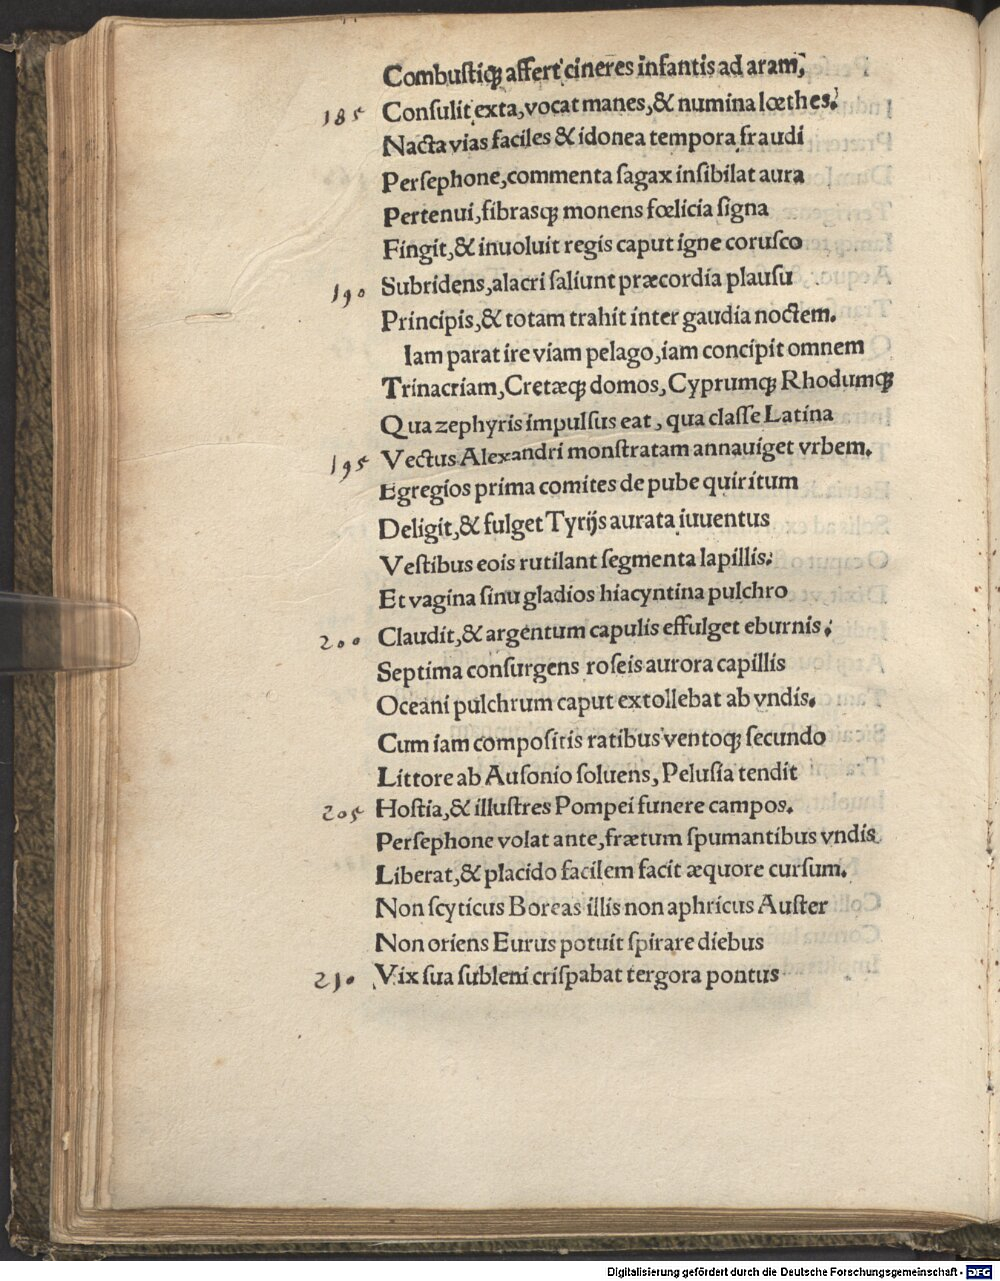 Combustiqꝫ affert cineres infantis ad aram,
185 Consulit exta, vocat manes, & numina lœthes.
Nacta vias faciles & idonea tempora fraudi
Persephone, commenta sagax insibilat aura
Pertenui, fibrasqꝫ monens fœlicia signa
Fingit, & inuoluit regis caput igne corusco
190 Subridens, alacri saliunt præcordia plausu
Principis, & totam trahit inter gaudia noctem.
Iam parat ire viam pelago, iam concipit omnem
Trinacriam, Cretæqꝫ domos, Cyprumqꝫ Rhodumqꝫ
Qua zephyris impulsus eat, qua classe Latina
195 Vectus Alexandri monstratam annauiget vrbem.
Egregios prima comites de pube quiritum
Deligit, & fulget Tyrijs aurata iuuentus
Vestibus eois rutilant segmenta lapillis:
Et vagina sinu gladios hiacyntina pulchro
200 Claudit, & argentum capulis effulget eburnis:
Septima consurgens roseis aurora capillis
Oceani pulchrum caput extollebat ab vndis.
Cum iam compositis ratibus ventoqꝫ secundo
Littore ab Ausonio soluens, Pelusia tendit
205 Hostia, & illustres Pompei funere campos.
Persephone volat ante, frætum spumantibus vndis
Liberat, & placido facilem facit æquore cursum.
Non scyticus Boreas illis non aphricus Auster
Non oriens Eurus potuit spirare diebus
210 Vix sua subleni crispabat tergora pontus
Digitalisierung gefördert durch die Deutsche Forschungsgemeinschaft - DFG